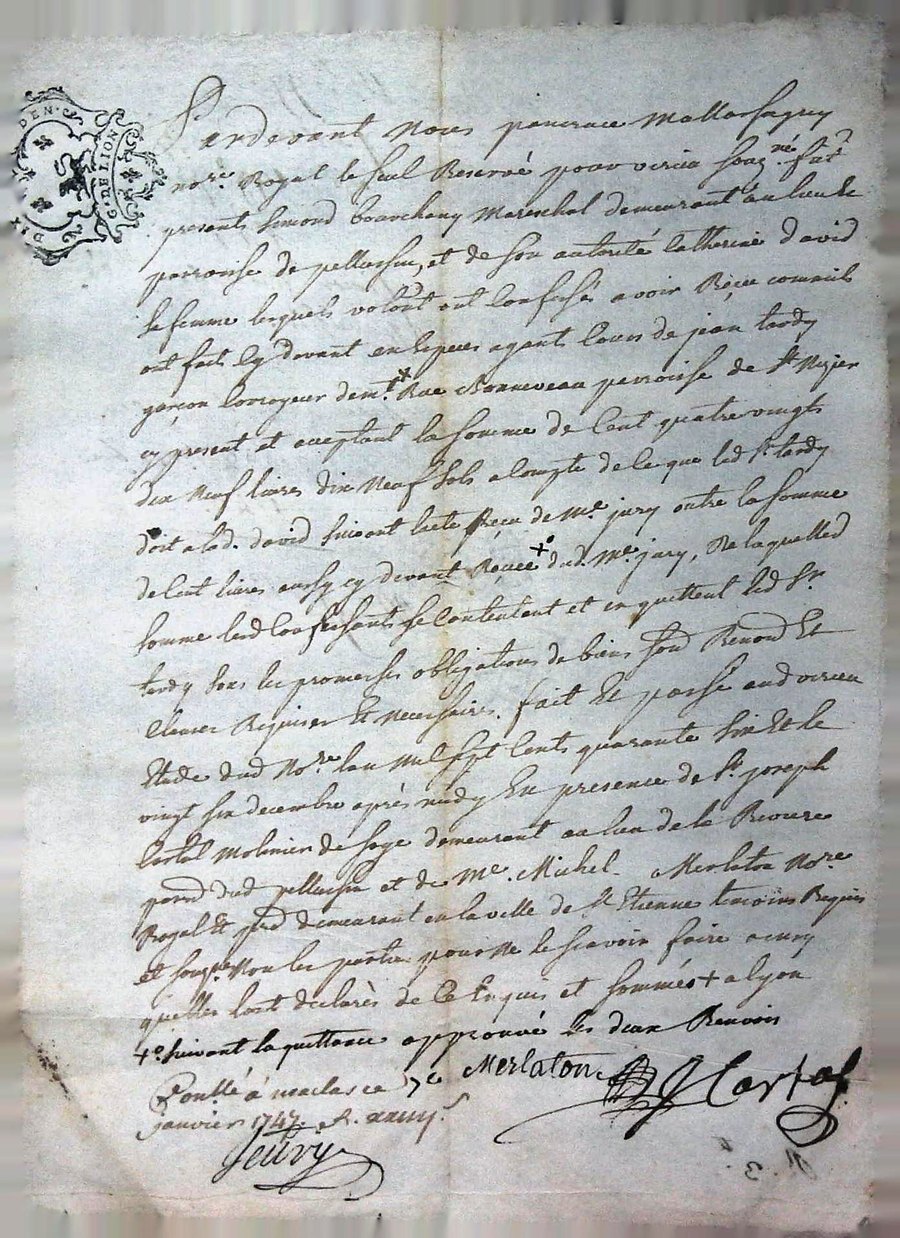 DEN
G. DE LION
Pardevant Nous pancrace Mallassagny
no.re Royal le seul Reservé pour virieu souz.né fut
presents simond bourchany Marechal demeurant au lieu Et
parroisse de pellussin, et de son autorité Catherine david
sa femme lesquels volont. ont Confessés avoir Reçeu comme ils
ont faits Cy devant en Especes ayants Cours de jean tardy
garçon Corroyeur dem.t + Rue Bonneveau parroisse de St Nizier
cy present et acceptant la somme de Cent quatre vingts
dix Neuf livres dix Neuf sols a Compte de Ce que led Sr tardy
doit a lad. david suivant l'acte Reçu de Me jury outre la somme
de Cent livres aussy cy devant Reçuee +o dud. Me. jury, De laquelle
somme lesd Confessants se Contentent et en quittent led Sr
tardy sous les promesses obligations de biens soud Renond Et
Clauses Requises Et Necessaires. fait Et passé aud virieu
Etude dud No.re l'an Mil sept Cents quarante six Et le
vingt six decembre après midy En presence de Sr. joseph
Cortal Molinier de soye demeurant au lieu de la Rivoire
parr.d dud pellussin et de Me. Michel Merlaton No.re
Royal Et prd demeurant en la ville de St Etienne temoins Requis
et souz.nés Non les parties pour Ne le sçavoir faire ainsy
quelles l'ont declarés de Ce Enquis et sommés + a lyon
+o. suivant la quittance approuvé les deux Renvois
Conllé à maclas ce 7e
janvier 1747. R. xxiiij s.
Merlaton
J Cortal
Jeury
N. 3.